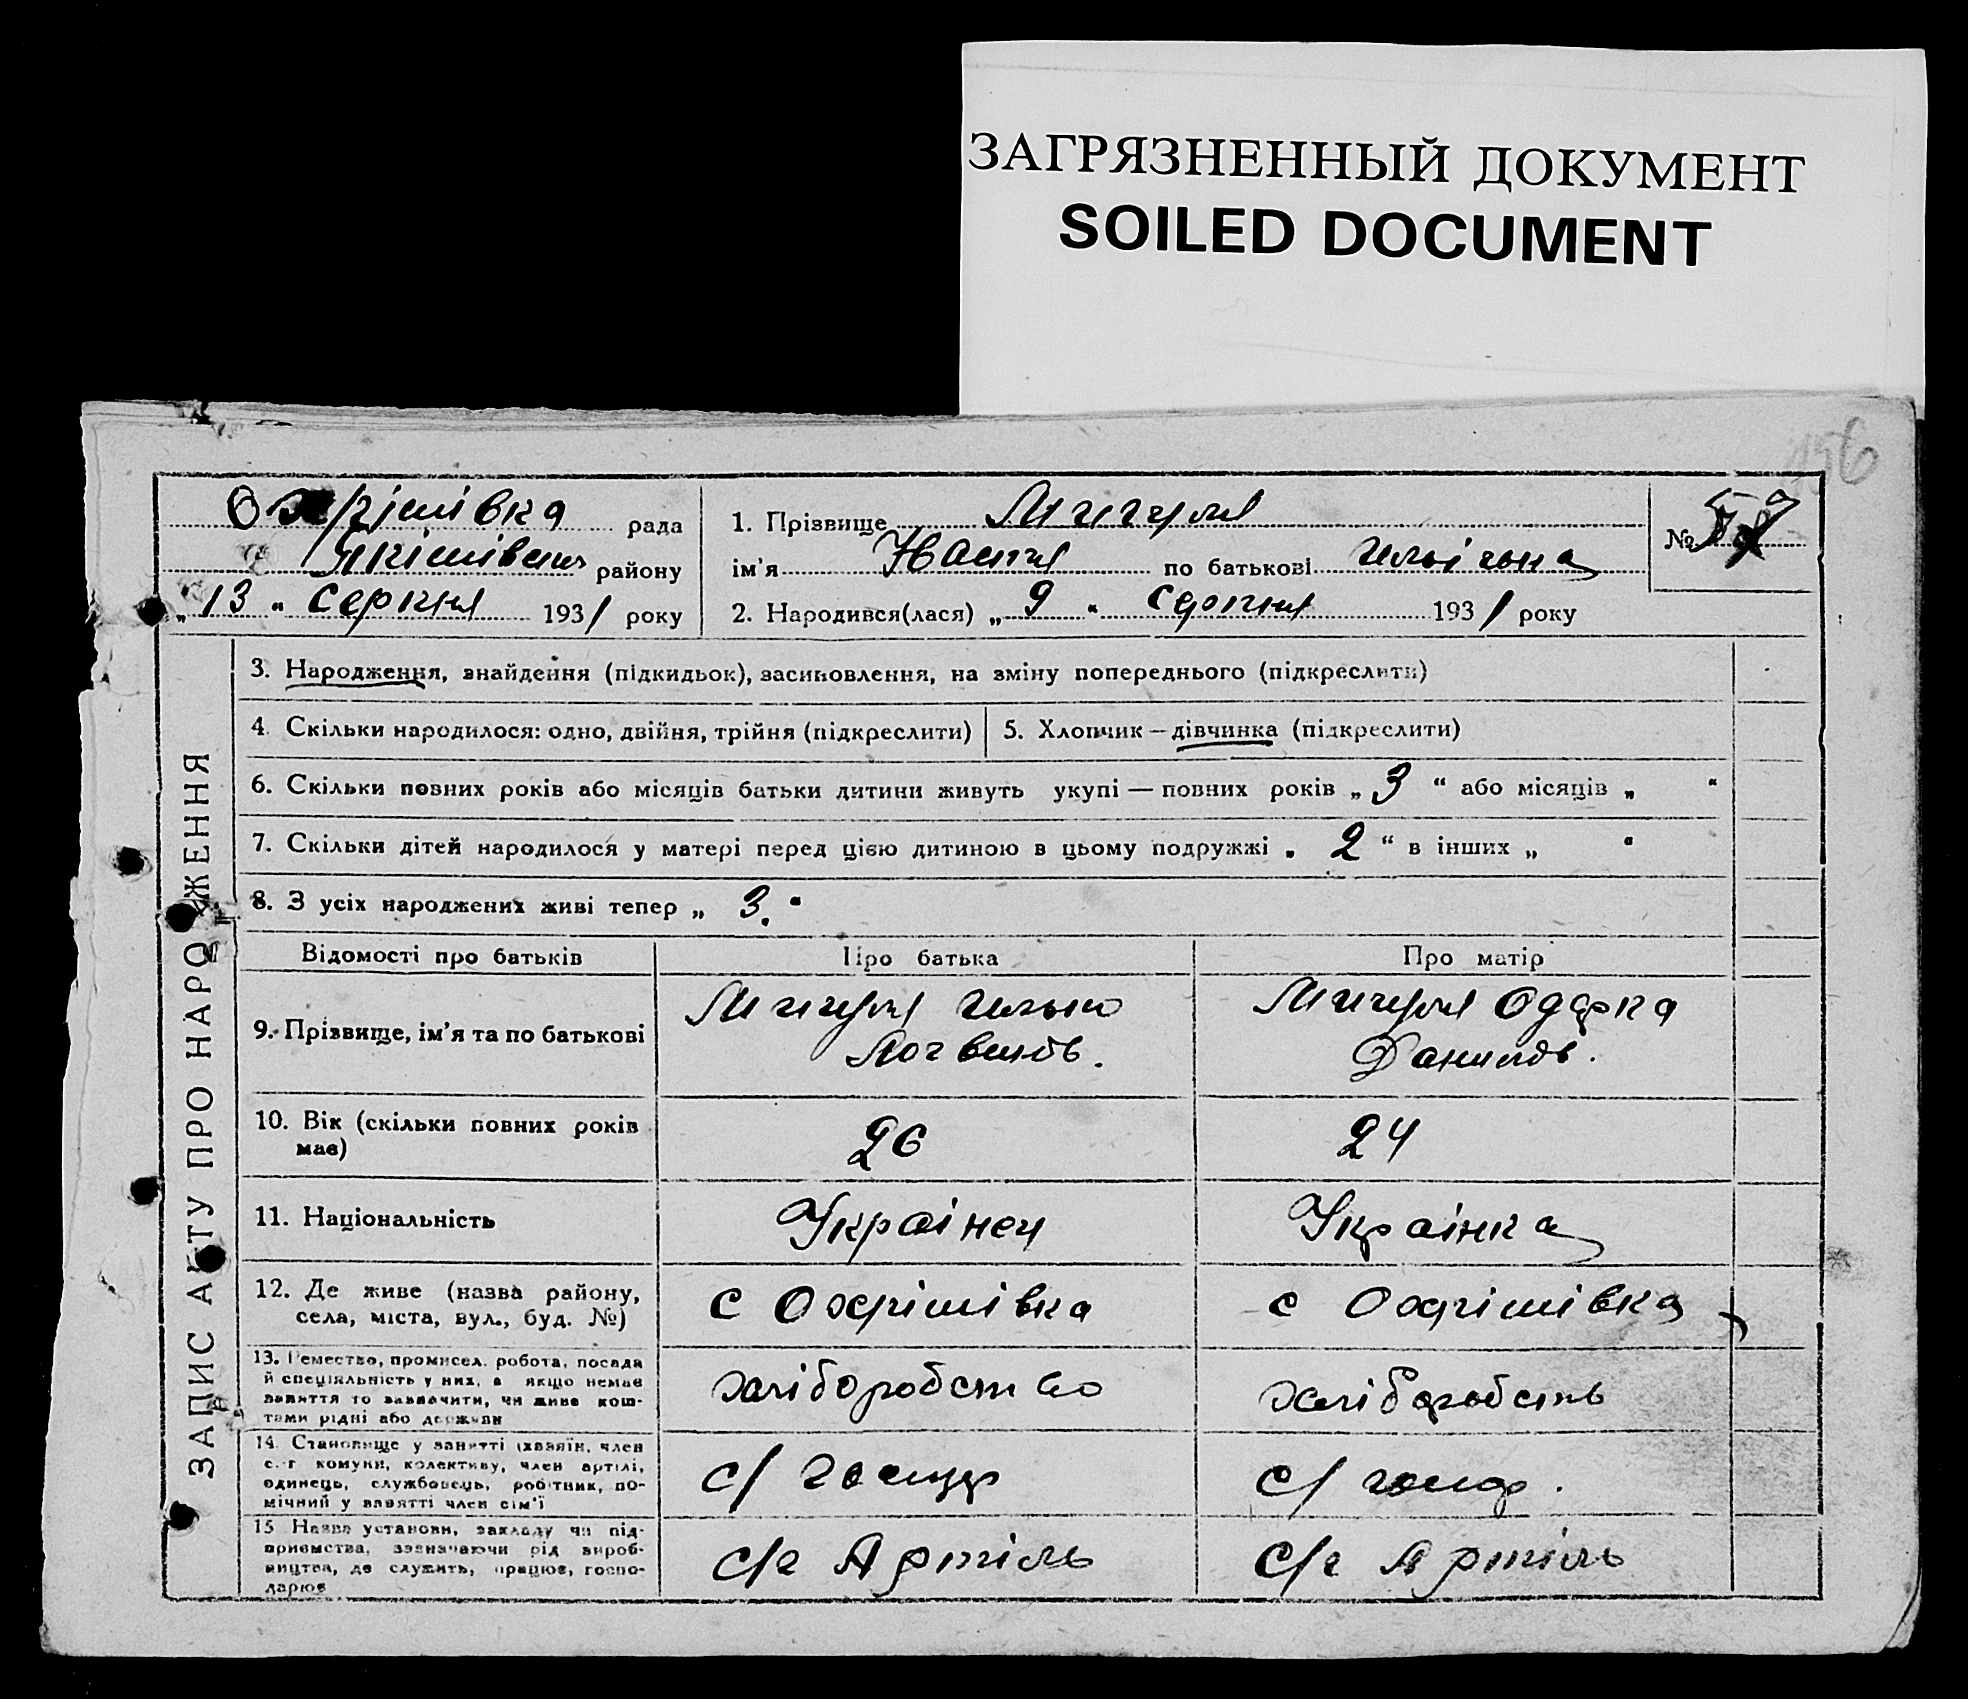 ЗАГРЯЗНЕННЫЙ ДОКУМЕНТ
SOILED DOCUMENT
156
Охрімівка рада
Якімівськ району
„13" Серпня 1931 року
1. Прізвище Мигуля
ім'я Настя по батькові Ільїчона
2. Народився(лася) „9" Серпня 1931 року
№
ЗАПИС АКТУ ПРО НАРОДЖЕННЯ
3. Народження, знайдення (підкидьок), засиновлення, на зміну попереднього (підкреслити)
4. Скільки народилося: одно, двійня, трійня (підкреслити)
5. Хлопчик — дівчинка (підкреслити)
6. Скільки повних років або місяців батьки дитини живуть укупі — повних років „3" або місяців „ "
7. Скільки дітей народилося у матері перед цією дитиною в цьому подружжі „2" в інших „ "
8. З усіх народжених живі тепер „3."
Відомості про батьків
Про батька
Про матір
9. Прізвище, ім'я та по батькові
Мигуля Ілько
Логвинов.
Мигуля Одарка
Данилов.
10. Вік (скільки повних років
має)
26
24
11. Національність
Українец
Українка
12. Де живе (назва району,
села, міста, вул., буд. №)
с Охрімівка
с Охрімівка
13. Ремество, промисел, робота, посада
й спеціяльність у них, а якщо немає
заняття то зазначити, чи живе кош-
тами рідні або держави
хліборобство
хліборобств
14. Становище у занятті (хазяїн, член
с.-г комуни, колективу, член артілі,
одинець, службовець, робітник, по-
мічний у занятті член сім'ї
с/ госпдр
с/ госпд.
15 Назва установи, закладу чи під-
приємства, зазначаючи рід вироб-
ництва, де служить, працює, госпо-
дарює
с/г Артіль
с/г Артіль